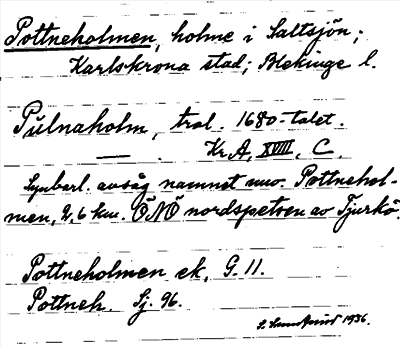 Pottneholmen, holme i Saltsjön;
Karlskrona stad; Blekinge l.
Pulnaholm, trol. 1680-talet.
— . Kr. A, XVIII, C.
Synbarl. avsåg namnet nuv. Pottnehol-
men, 2,6 km. ÖNÖ nordspetsen av Tjurkö.
Pottneholmen ek. G. 11.
Pottneh. Sj. 96.
1936.